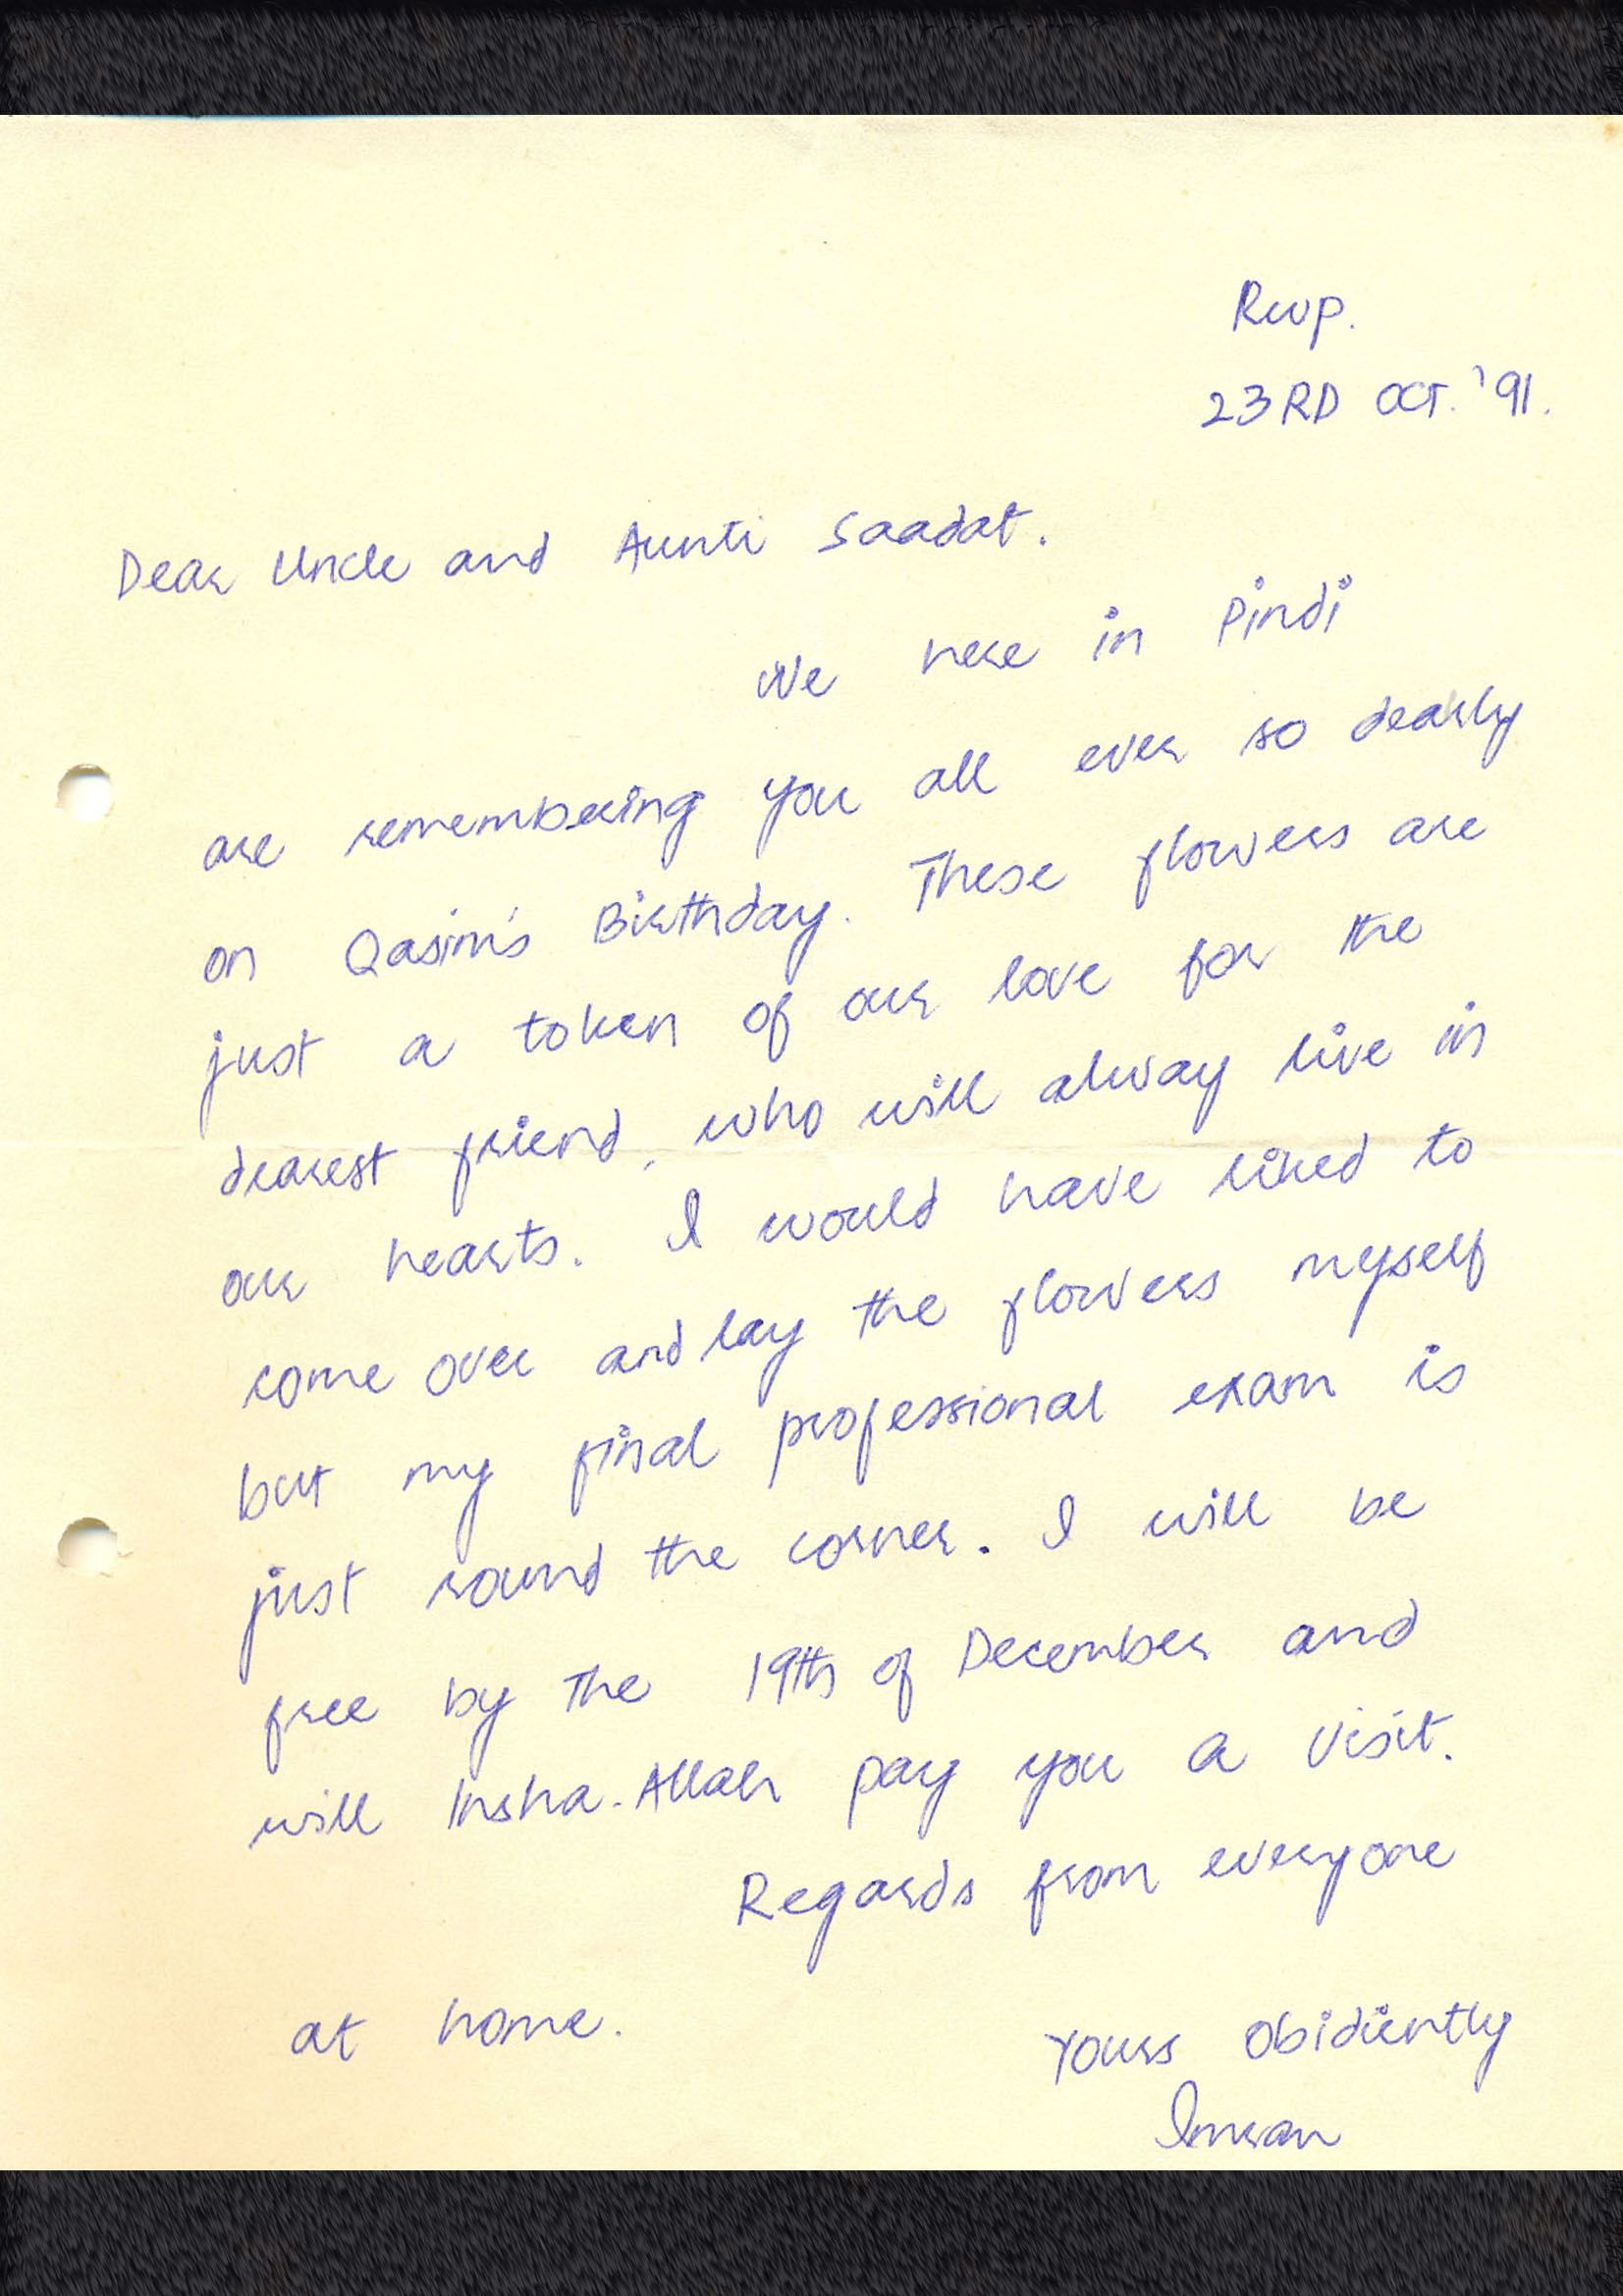 Rwp.
23RD OCT. '91.
Dear Uncle and Aunti Saadat.
We here in Pindi
are remembering you all ever so dearly
on Qasim's Birthday. These flowers are
just a token of our love for the
dearest friend, who will alway live in
our hearts. I would have liked to
come over and lay the flowers myself
but my final professional exam is
just round the corner. I will be
free by the 19th of December and
will Insha-Allah pay you a visit.
Regards from everyone
at home.
Yours Obidiently
Imran